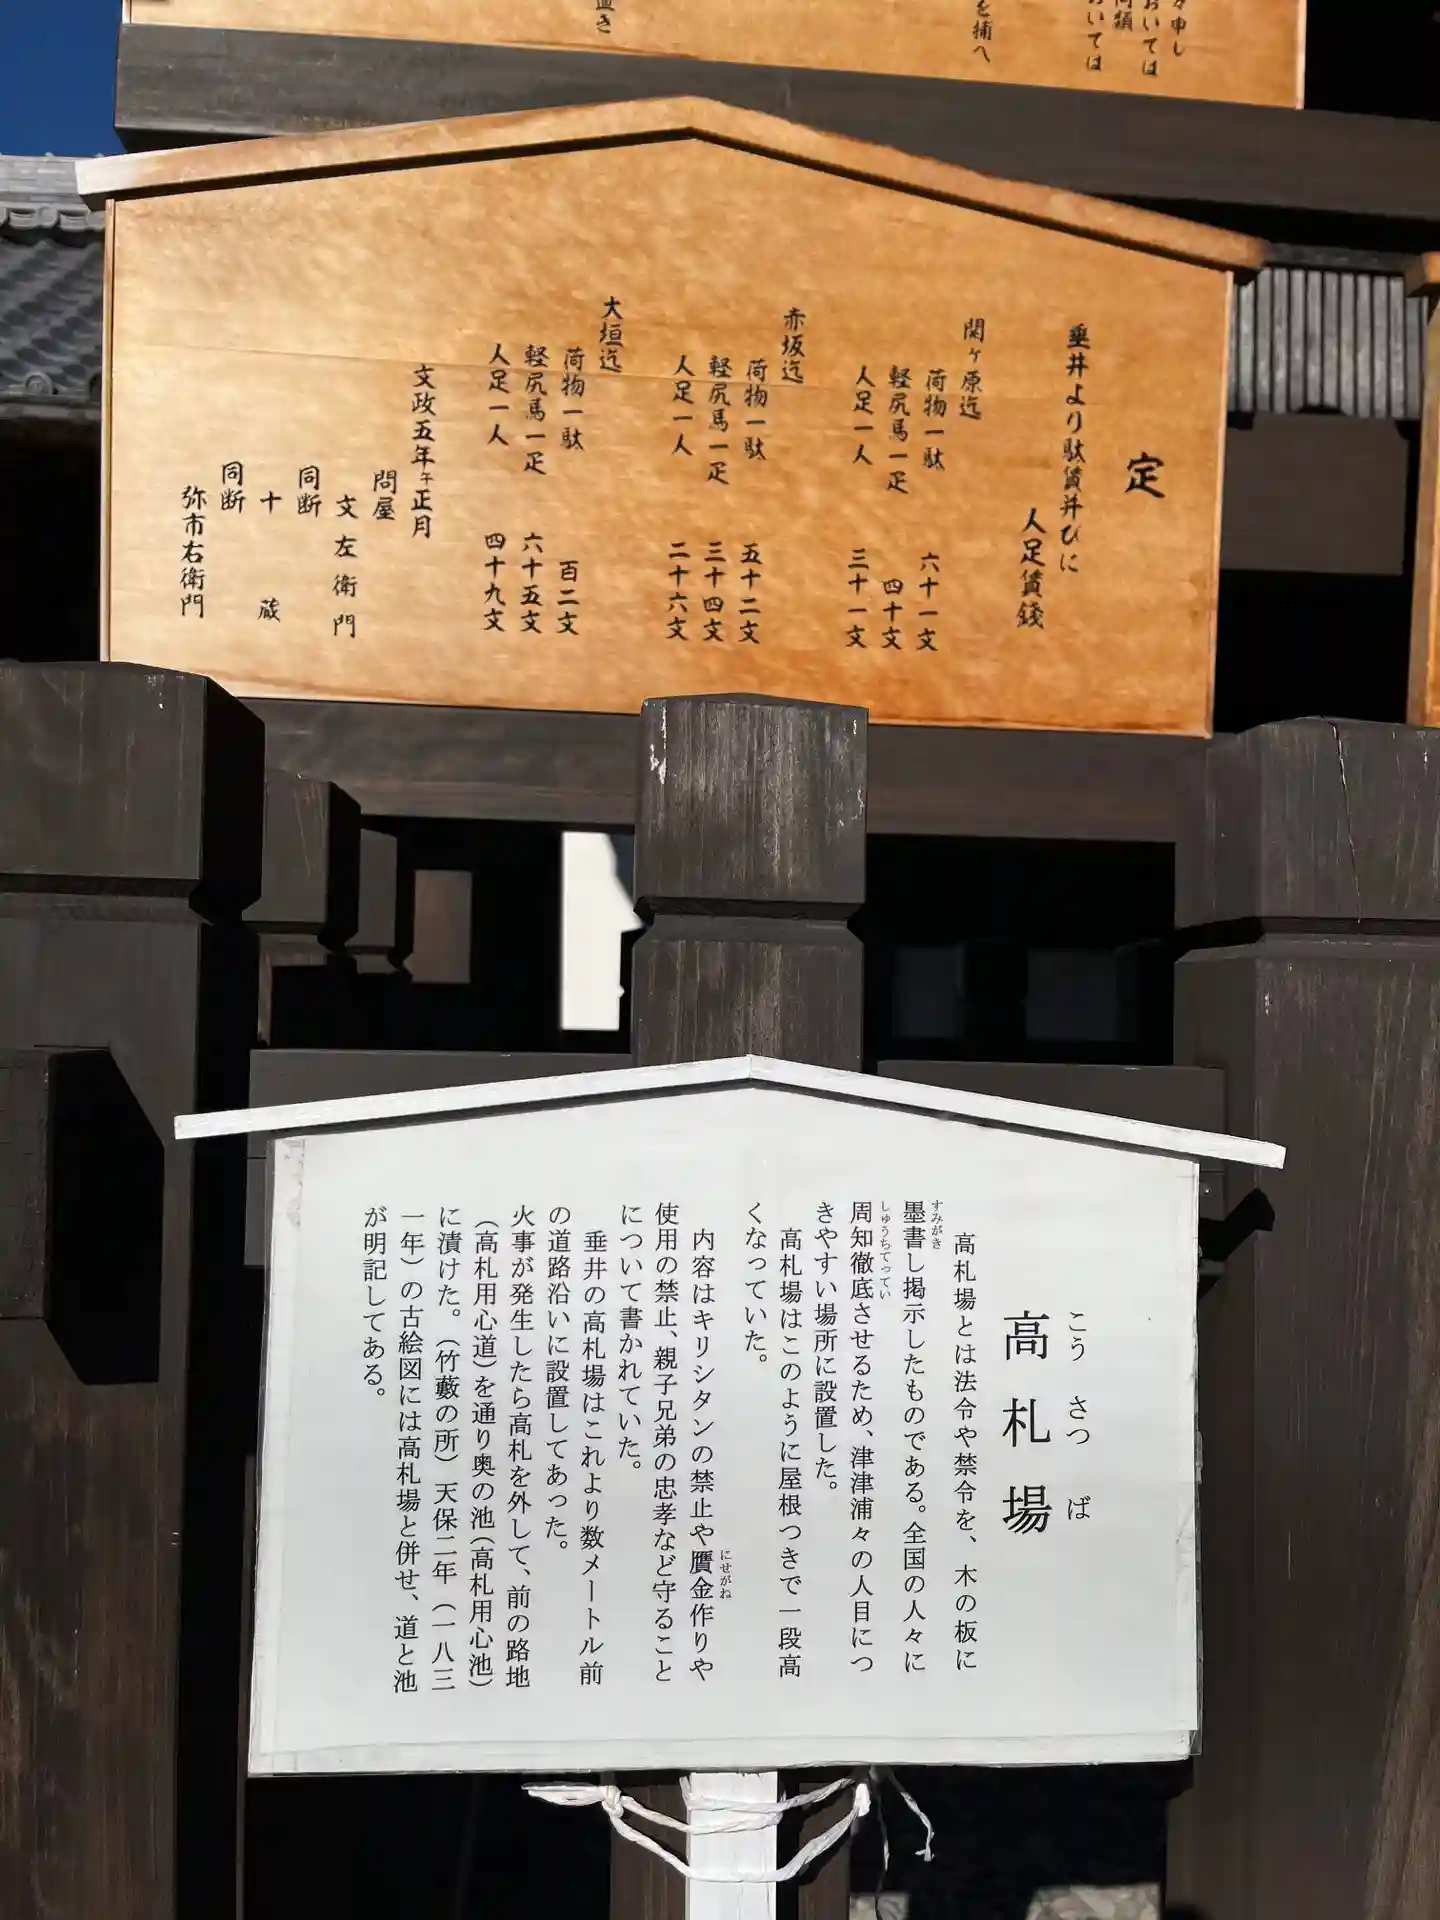 々申し
おいては
同類
おいては
を捕へ
置き
定
垂井より駄賃并びに
人足賃銭
関ヶ原迄
荷物一駄 六十一文
軽尻馬一疋 四十文
人足一人 三十一文
赤坂迄
荷物一駄 五十二文
軽尻馬一疋 三十四文
人足一人 二十六文
大垣迄
荷物一駄 百二文
軽尻馬一疋 六十五文
人足一人 四十九文
文政五年午正月
問屋
文左衛門
同断
十蔵
同断
弥市右衛門
こうさつば
高札場
高札場とは法令や禁令を、木の板に
すみがき
墨書し掲示したものである。全国の人々に
しゅうちてってい
周知徹底させるため、津津浦々の人目につ
きやすい場所に設置した。
高札場はこのように屋根つきで一段高
くなっていた。
にせがね
内容はキリシタンの禁止や贋金作りや
使用の禁止、親子兄弟の忠孝など守ること
について書かれていた。
垂井の高札場はこれより数メートル前
の道路沿いに設置してあった。
火事が発生したら高札を外して、前の路地
（高札用心道）を通り奥の池（高札用心池）
に漬けた。（竹藪の所）天保二年（一八三
一年）の古絵図には高札場と併せ、道と池
が明記してある。